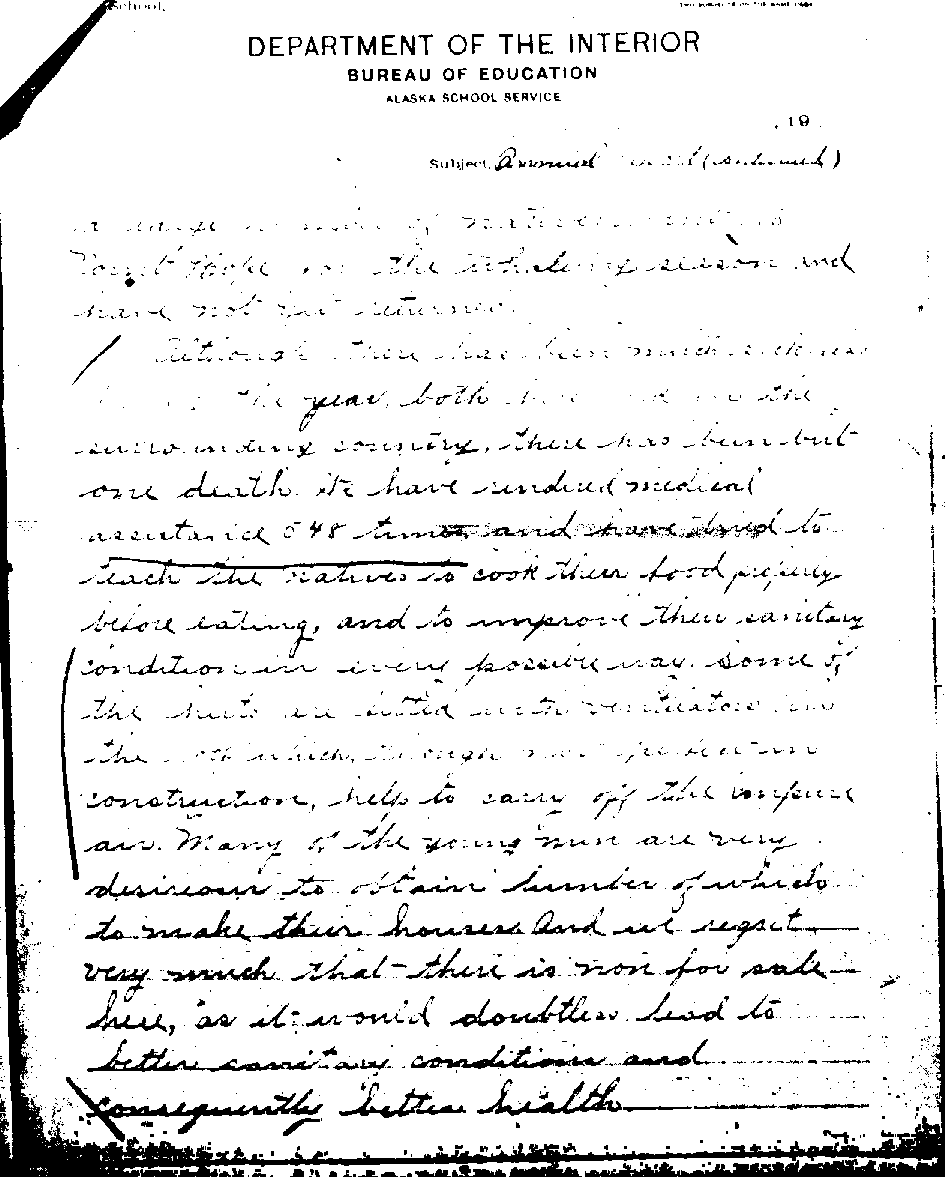 School,
DEPARTMENT OF THE INTERIOR
BUREAU OF EDUCATION
ALASKA SCHOOL SERVICE
, 19
Subject, Annual (continued)
a large number of natives went to
Point Hope for the whaling season and
have not yet returned.
Although there has been much sickness
the year, both here and in the
surrounding country, there has been but
one death. We have rendered medical
assistance 548 times and have tried to
teach the natives to cook their food properly
before eating, and to improve their sanitary
condition in every possible way. Some of
the huts are fitted with ventilators in
the which, though in
construction, help to carry off the impure
air. Many of the young men are very
desireous to obtain lumber of which
to make their houses and we regret
very much that there is non for sale
here, as it would doubtless lead to
better sanitary conditions and
consequently better health